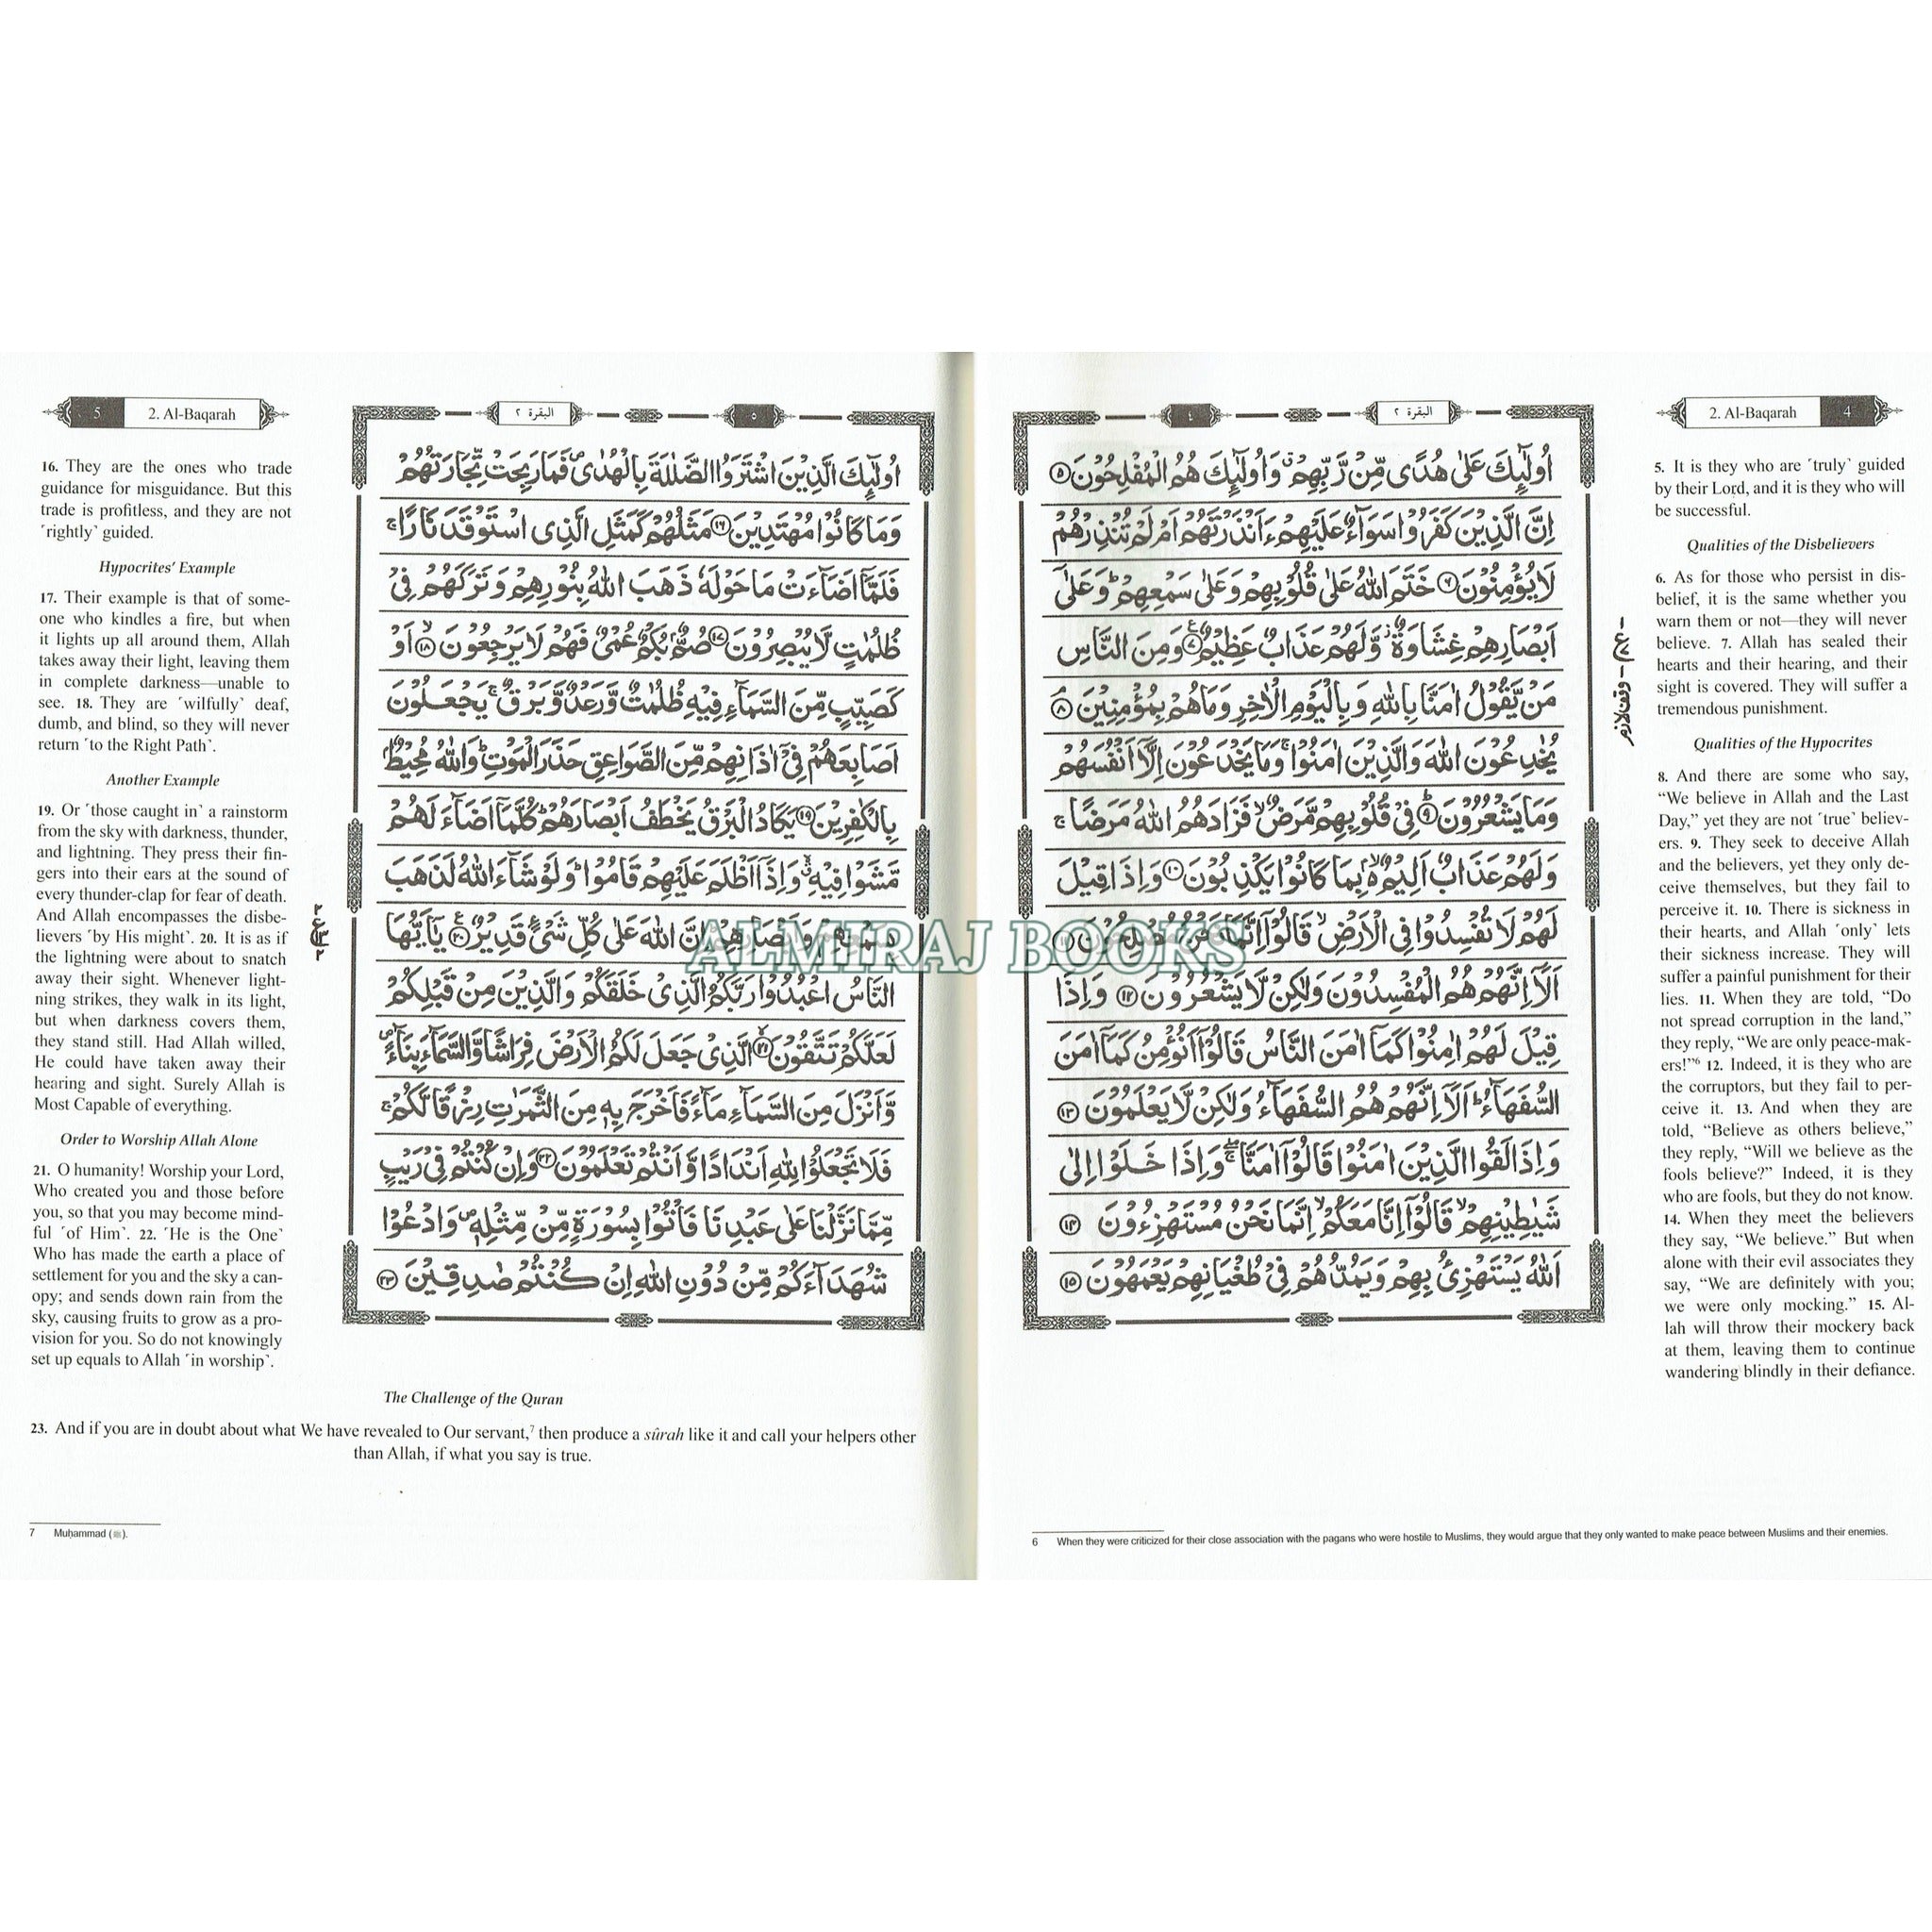 2. Al-Baqarah 4
البقرة ٢
٤
اُولٰٓئِكَ عَلٰى هُدًى مِّنْ رَّبِّهِمْ ۗ وَاُولٰٓئِكَ هُمُ الْمُفْلِحُوْنَ ۝٥
اِنَّ الَّذِيْنَ كَفَرُوْا سَوَآءٌ عَلَيْهِمْ ءَاَنْذَرْتَهُمْ اَمْ لَمْ تُنْذِرْهُمْ
لَا يُؤْمِنُوْنَ ۝٦ خَتَمَ اللّٰهُ عَلٰى قُلُوْبِهِمْ وَعَلٰى سَمْعِهِمْ ؕ وَعَلٰٓى
اَبْصَارِهِمْ غِشَاوَةٌ ۫ وَّلَهُمْ عَذَابٌ عَظِيْمٌ ۝٧ وَمِنَ النَّاسِ
مَنْ يَّقُوْلُ اٰمَنَّا بِاللّٰهِ وَبِالْيَوْمِ الْاٰخِرِ وَمَا هُمْ بِمُؤْمِنِيْنَ ۝٨
يُخٰدِعُوْنَ اللّٰهَ وَالَّذِيْنَ اٰمَنُوْا ۚ وَمَا يَخْدَعُوْنَ اِلَّآ اَنْفُسَهُمْ
وَمَا يَشْعُرُوْنَ ۝٩ فِيْ قُلُوْبِهِمْ مَّرَضٌ ۙ فَزَادَهُمُ اللّٰهُ مَرَضًا ۚ
وَلَهُمْ عَذَابٌ اَلِيْمٌ ۢ ۙ بِمَا كَانُوْا يَكْذِبُوْنَ ۝١٠ وَاِذَا قِيْلَ
لَهُمْ لَا تُفْسِدُوْا فِى الْاَرْضِ ۙ قَالُوْٓا اِنَّمَا نَحْنُ مُصْلِحُوْنَ ۝١١
اَلَآ اِنَّهُمْ هُمُ الْمُفْسِدُوْنَ وَلٰكِنْ لَّا يَشْعُرُوْنَ ۝١٢ وَاِذَا
قِيْلَ لَهُمْ اٰمِنُوْا كَمَآ اٰمَنَ النَّاسُ قَالُوْٓا اَنُؤْمِنُ كَمَآ اٰمَنَ
السُّفَهَآءُ ؕ اَلَآ اِنَّهُمْ هُمُ السُّفَهَآءُ وَلٰكِنْ لَّا يَعْلَمُوْنَ ۝١٣
وَاِذَا لَقُوا الَّذِيْنَ اٰمَنُوْا قَالُوْٓا اٰمَنَّا ۖۚ وَاِذَا خَلَوْا اِلٰى
شَيٰطِيْنِهِمْ ۙ قَالُوْٓا اِنَّا مَعَكُمْ ۙ اِنَّمَا نَحْنُ مُسْتَهْزِءُوْنَ ۝١٤
اَللّٰهُ يَسْتَهْزِئُ بِهِمْ وَيَمُدُّهُمْ فِيْ طُغْيَانِهِمْ يَعْمَهُوْنَ ۝١٥
وقف لازم
5. It is they who are ˹truly˺ guided
by their Lord, and it is they who will
be successful.
Qualities of the Disbelievers
6. As for those who persist in dis-
belief, it is the same whether you
warn them or not—they will never
believe. 7. Allah has sealed their
hearts and their hearing, and their
sight is covered. They will suffer a
tremendous punishment.
Qualities of the Hypocrites
8. And there are some who say,
“We believe in Allah and the Last
Day,” yet they are not ˹true˺ believ-
ers. 9. They seek to deceive Allah
and the believers, yet they only de-
ceive themselves, but they fail to
perceive it. 10. There is sickness in
their hearts, and Allah ˹only˺ lets
their sickness increase. They will
suffer a painful punishment for their
lies. 11. When they are told, “Do
not spread corruption in the land,”
they reply, “We are only peace-mak-
ers!”6 12. Indeed, it is they who are
the corruptors, but they fail to per-
ceive it. 13. And when they are
told, “Believe as others believe,”
they reply, “Will we believe as the
fools believe?” Indeed, it is they
who are fools, but they do not know.
14. When they meet the believers
they say, “We believe.” But when
alone with their evil associates they
say, “We are definitely with you;
we were only mocking.” 15. Al-
lah will throw their mockery back
at them, leaving them to continue
wandering blindly in their defiance.
6 When they were criticized for their close association with the pagans who were hostile to Muslims, they would argue that they only wanted to make peace between Muslims and their enemies.
5 2. Al-Baqarah
البقرة ٢
٥
اُولٰٓئِكَ الَّذِيْنَ اشْتَرَوُا الضَّلٰلَةَ بِالْهُدٰى ۪ فَمَا رَبِحَتْ تِّجَارَتُهُمْ
وَمَا كَانُوْا مُهْتَدِيْنَ ۝١٦ مَثَلُهُمْ كَمَثَلِ الَّذِى اسْتَوْقَدَ نَارًا ۚ
فَلَمَّآ اَضَآءَتْ مَا حَوْلَهٗ ذَهَبَ اللّٰهُ بِنُوْرِهِمْ وَتَرَكَهُمْ فِيْ
ظُلُمٰتٍ لَّا يُبْصِرُوْنَ ۝١٧ صُمٌّ ۢ بُكْمٌ عُمْيٌ فَهُمْ لَا يَرْجِعُوْنَ ۝١٨ ۙ اَوْ
كَصَيِّبٍ مِّنَ السَّمَآءِ فِيْهِ ظُلُمٰتٌ وَّرَعْدٌ وَّبَرْقٌ ۚ يَجْعَلُوْنَ
اَصَابِعَهُمْ فِيْٓ اٰذَانِهِمْ مِّنَ الصَّوَاعِقِ حَذَرَ الْمَوْتِ ؕ وَاللّٰهُ مُحِيْطٌ ۢ
بِالْكٰفِرِيْنَ ۝١٩ يَكَادُ الْبَرْقُ يَخْطَفُ اَبْصَارَهُمْ ؕ كُلَّمَآ اَضَآءَ لَهُمْ
مَّشَوْا فِيْهِ ۙ وَاِذَآ اَظْلَمَ عَلَيْهِمْ قَامُوْا ؕ وَلَوْ شَآءَ اللّٰهُ لَذَهَبَ
بِسَمْعِهِمْ وَاَبْصَارِهِمْ ؕ اِنَّ اللّٰهَ عَلٰى كُلِّ شَيْءٍ قَدِيْرٌ ۝٢٠ يٰٓاَيُّهَا
النَّاسُ اعْبُدُوْا رَبَّكُمُ الَّذِيْ خَلَقَكُمْ وَالَّذِيْنَ مِنْ قَبْلِكُمْ
لَعَلَّكُمْ تَتَّقُوْنَ ۝٢١ ۙ الَّذِيْ جَعَلَ لَكُمُ الْاَرْضَ فِرَاشًا وَّالسَّمَآءَ بِنَآءً ۪
وَّاَنْزَلَ مِنَ السَّمَآءِ مَآءً فَاَخْرَجَ بِهٖ مِنَ الثَّمَرٰتِ رِزْقًا لَّكُمْ ۚ
فَلَا تَجْعَلُوْا لِلّٰهِ اَنْدَادًا وَّاَنْتُمْ تَعْلَمُوْنَ ۝٢٢ وَاِنْ كُنْتُمْ فِيْ رَيْبٍ
مِّمَّا نَزَّلْنَا عَلٰى عَبْدِنَا فَاْتُوْا بِسُوْرَةٍ مِّنْ مِّثْلِهٖ ۪ وَادْعُوْا
شُهَدَآءَكُمْ مِّنْ دُوْنِ اللّٰهِ اِنْ كُنْتُمْ صٰدِقِيْنَ ۝٢٣
16. They are the ones who trade
guidance for misguidance. But this
trade is profitless, and they are not
˹rightly˺ guided.
Hypocrites’ Example
17. Their example is that of some-
one who kindles a fire, but when
it lights up all around them, Allah
takes away their light, leaving them
in complete darkness—unable to
see. 18. They are ˹wilfully˺ deaf,
dumb, and blind, so they will never
return ˹to the Right Path˺.
Another Example
19. Or ˹those caught in˺ a rainstorm
from the sky with darkness, thunder,
and lightning. They press their fin-
gers into their ears at the sound of
every thunder-clap for fear of death.
And Allah encompasses the disbe-
lievers ˹by His might˺. 20. It is as if
the lightning were about to snatch
away their sight. Whenever light-
ning strikes, they walk in its light,
but when darkness covers them,
they stand still. Had Allah willed,
He could have taken away their
hearing and sight. Surely Allah is
Most Capable of everything.
Order to Worship Allah Alone
21. O humanity! Worship your Lord,
Who created you and those before
you, so that you may become mind-
ful ˹of Him˺. 22. ˹He is the One˺
Who has made the earth a place of
settlement for you and the sky a can-
opy; and sends down rain from the
sky, causing fruits to grow as a pro-
vision for you. So do not knowingly
set up equals to Allah ˹in worship˺.
The Challenge of the Quran
23. And if you are in doubt about what We have revealed to Our servant,7 then produce a sûrah like it and call your helpers other
than Allah, if what you say is true.
7 Muḥammad (ﷺ).
ALMIRAJ BOOKS